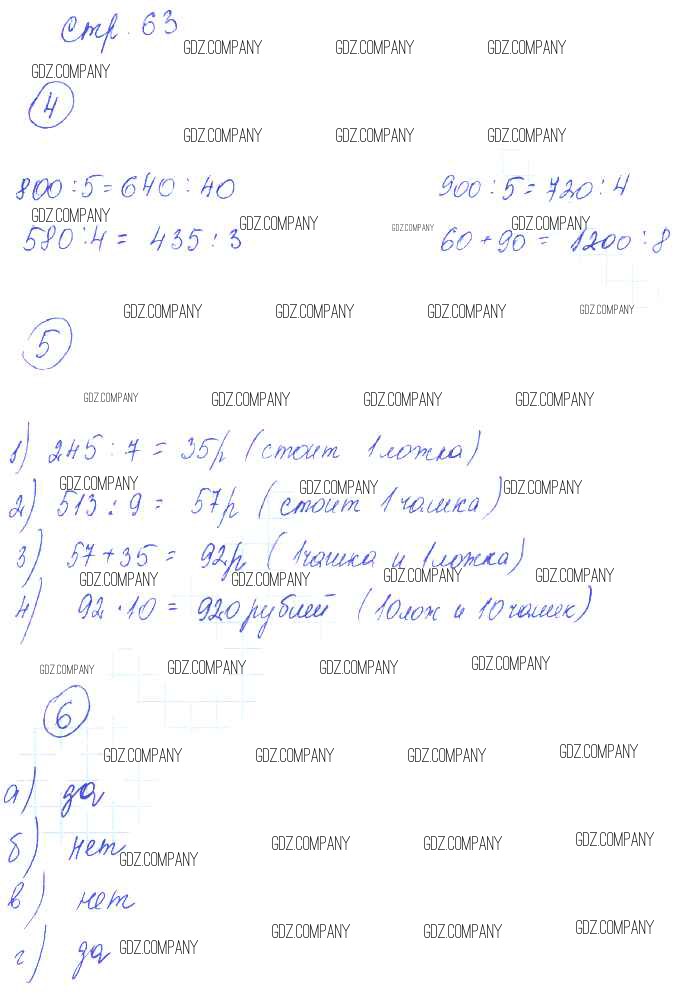 стр. 63
GDZ.COMPANY GDZ.COMPANY GDZ.COMPANY
GDZ.COMPANY
4
GDZ.COMPANY GDZ.COMPANY GDZ.COMPANY
800 : 5 = 640 : 40 900 : 5 = 720 : 4
GDZ.COMPANY GDZ.COMPANY GDZ.COMPANY GDZ.COMPANY
580 : 4 = 435 : 3 60 + 90 = 1200 : 8
GDZ.COMPANY GDZ.COMPANY GDZ.COMPANY GDZ.COMPANY
5
GDZ.COMPANY GDZ.COMPANY GDZ.COMPANY GDZ.COMPANY
1) 245 : 7 = 35р (стоит 1 ложка)
GDZ.COMPANY GDZ.COMPANY GDZ.COMPANY
2) 513 : 9 = 57р (стоит 1 чашка)
3) 57 + 35 = 92р (1 чашка и 1 ложка)
GDZ.COMPANY GDZ.COMPANY GDZ.COMPANY GDZ.COMPANY
4) 92 · 10 = 920 рублей (10 лож и 10 чашек)
GDZ.COMPANY GDZ.COMPANY GDZ.COMPANY GDZ.COMPANY
6
GDZ.COMPANY GDZ.COMPANY GDZ.COMPANY GDZ.COMPANY
а) да
б) нет
GDZ.COMPANY GDZ.COMPANY GDZ.COMPANY GDZ.COMPANY
в) нет
GDZ.COMPANY GDZ.COMPANY GDZ.COMPANY
г) да GDZ.COMPANY